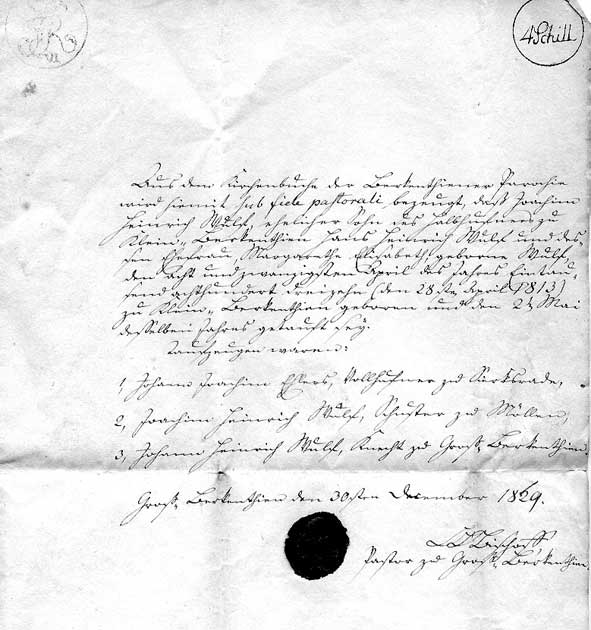 4 Schill
Aus dem Kirchenbuche der Berkenthiener Parochie
wird hiemit sub fide pastorali bezeugt, daß Joachim
Heinrich Wulf, ehelicher Sohn des Halbhufners zu
Klein-Berkenthien Hans Heinrich Wulf und des-
sen Ehefrau, Margaretha Elisabeth, geborne Wulf,
den acht und zwanzigsten April des Jahres Eintau-
send achthundert dreizehn (den 28sten April 1813)
zu Klein-Berkenthien geboren und den 2ten Mai
desselben Jahres getauft sey.
Taufzeugen waren:
1, Johann Joachim Ehlers, Vollhufner zu Sirksrade,
2, Joachim Heinrich Wulf, Schuster zu Möllen,
3, Johann Heinrich Wulf, Knecht zu Groß-Berkenthien.
Groß-Berkenthien den 30sten December 1829.
Bischoff
Pastor zu Groß-Berkenthien.